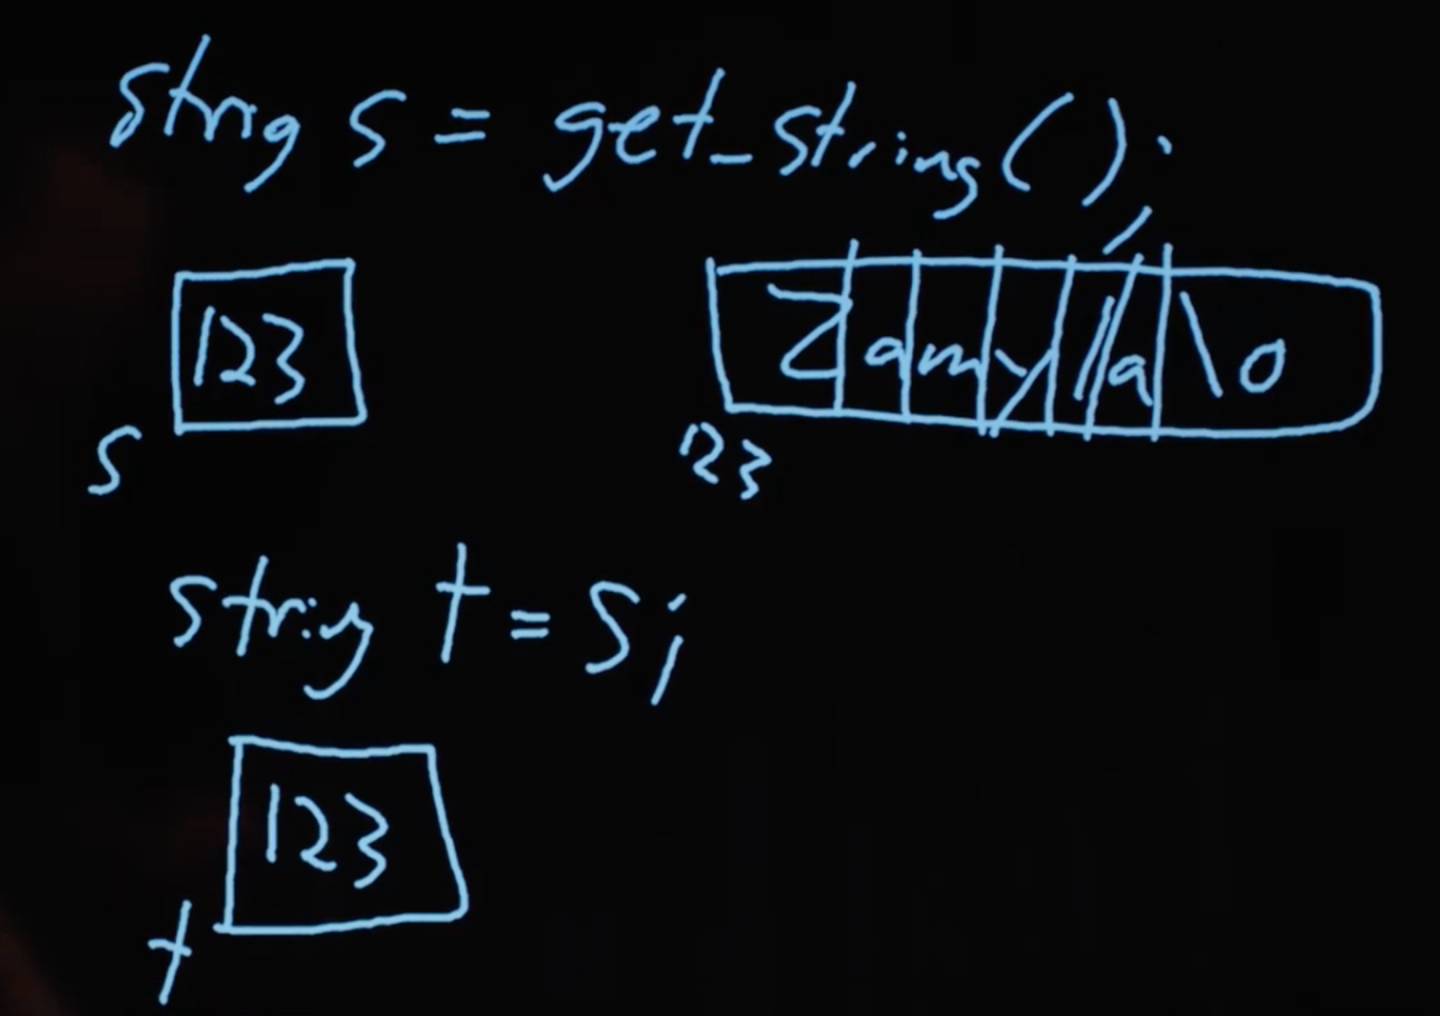 string s = get_string();
123
Zamyla\0
s
123
string t = s;
123
t